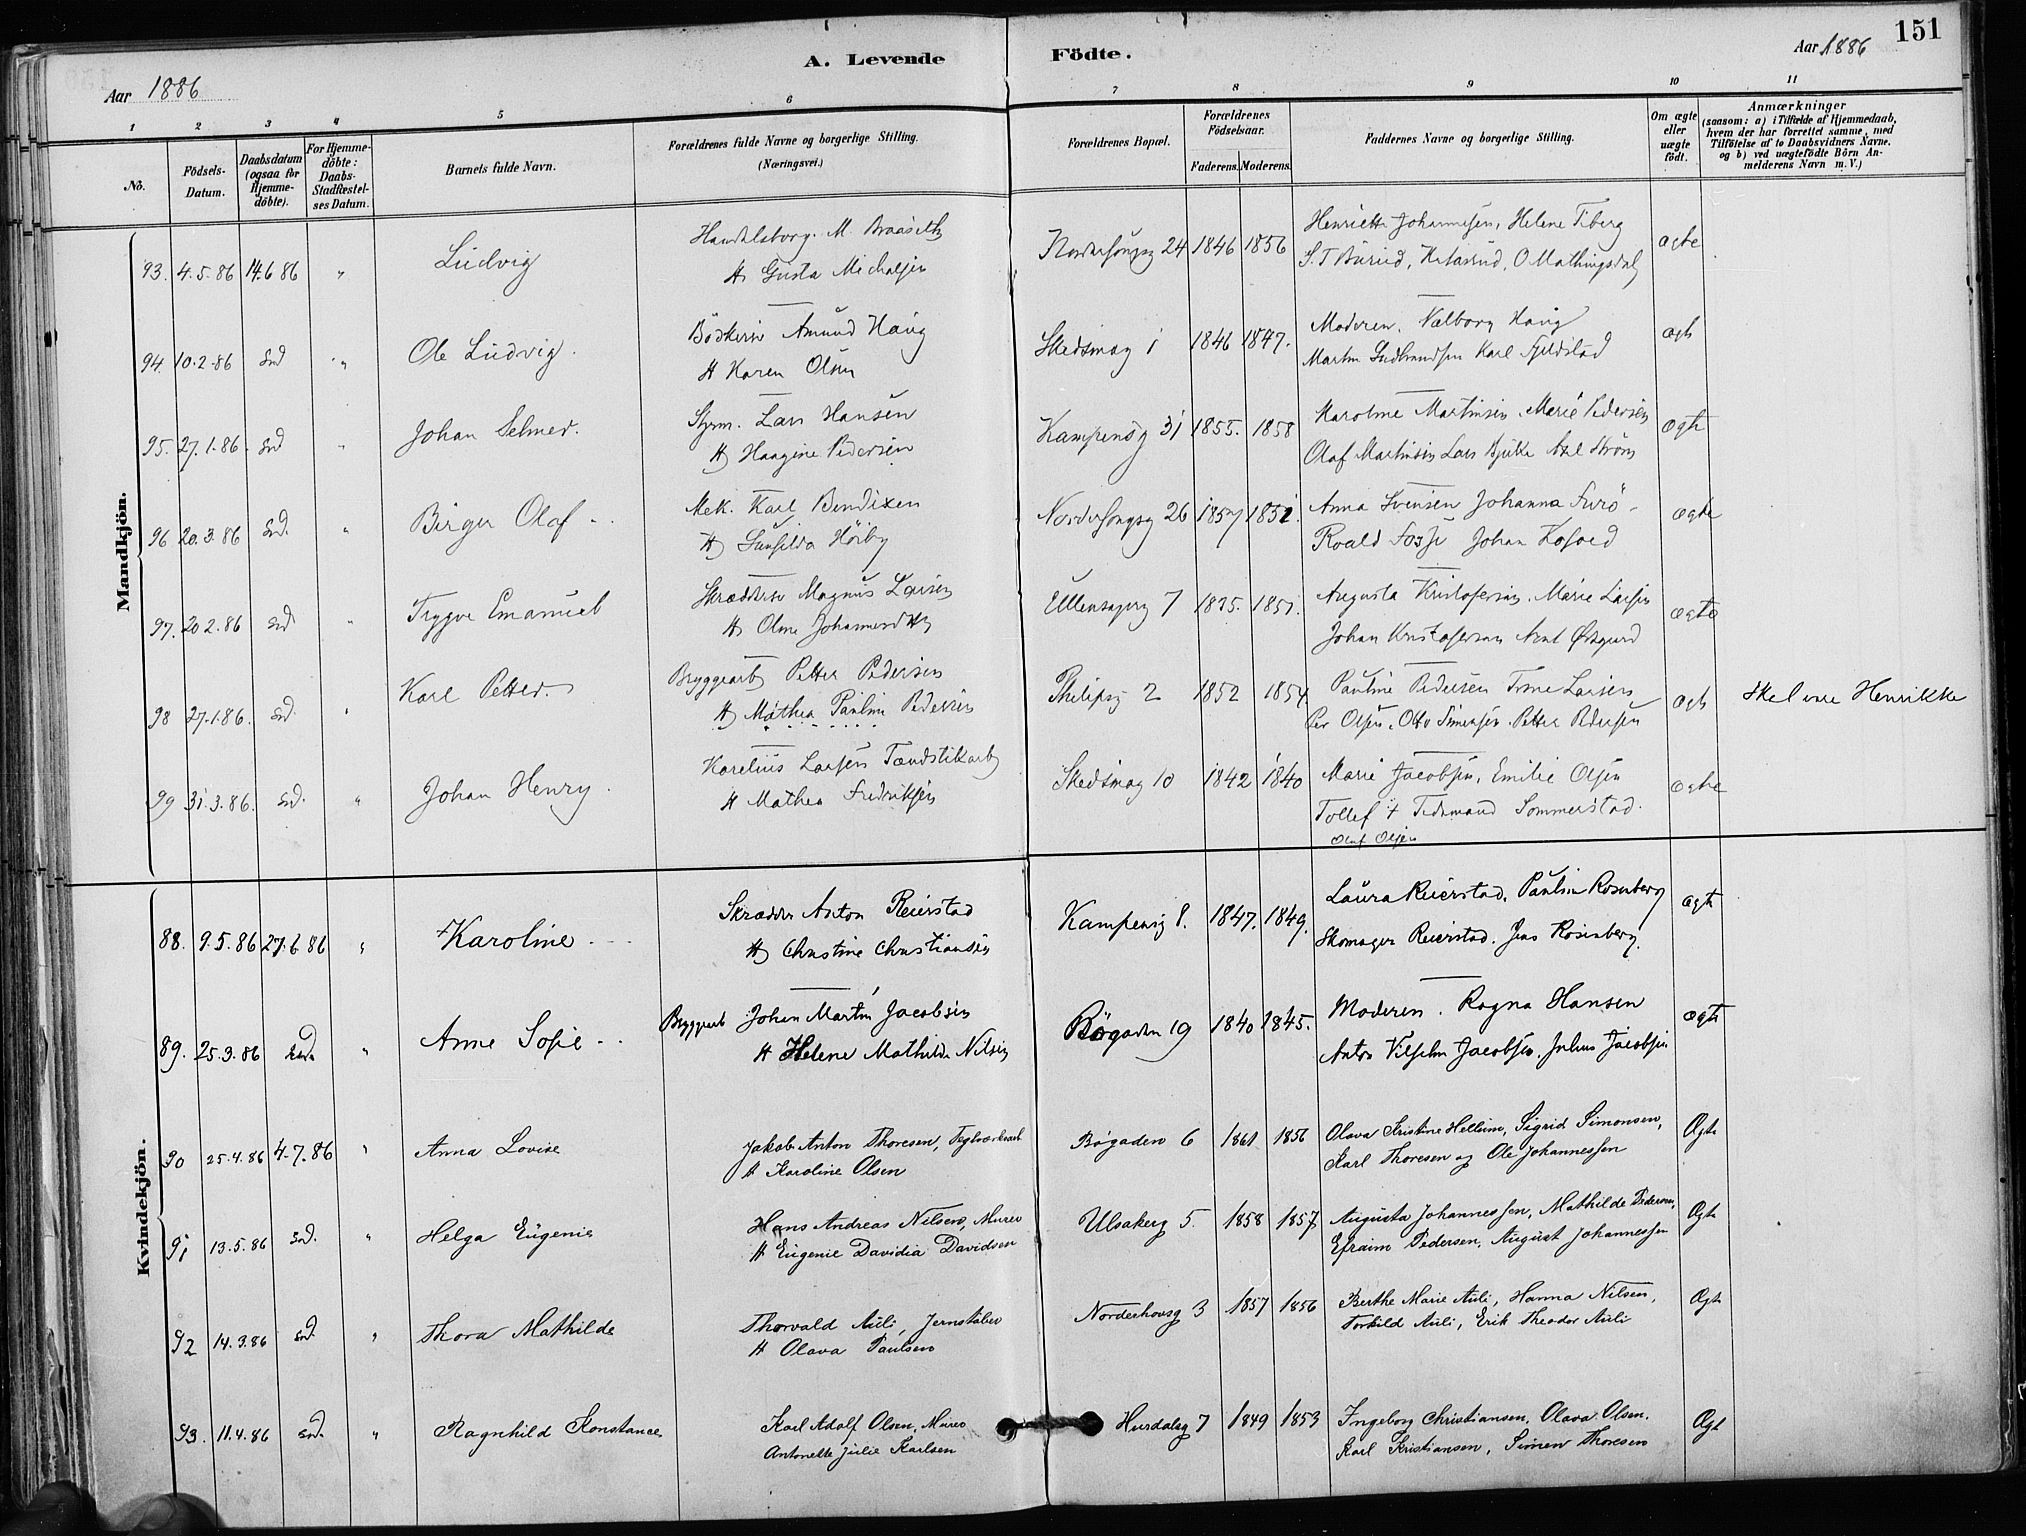 151
A. Levende Födte.
Aar 1886
Aar 1886
1 2 3 4 5 6 7 8 9 10 11
No.
Födsels-Datum.
Daabsdatum (ogsaa for Hjemme-döbte).
For Hjemme-döbte: Daabs-Stadfæstel-ses Datum.
Barnets fulde Navn.
Forældrenes fulde Navne og borgerlige Stilling.
(Næringsvei.)
Forældrenes Bopæl.
Forældrenes Födselsaar.
Faderens. Moderens.
Faddernes Navne og borgerlige Stilling.
Om ægte eller uægte födt.
Anmærkninger
(saasom: a) i Tilfælde af Hjemmedaab, hvem der har forrettet samme, med Tilföielse af to Daabsvidners Navne, og b) ved uægtefödte Börn An-melderens Navn m. V.)
Mandkjön.
93. 4.5.86 14.6 86 " Ludvig
Gusta Michelsen
24 1846 1856
Helene Tiberg
ægte
94. 10.2.86 Sod " Ole Ludvig.
Amund Haug
& Karen Olsen
Skedsmog 1 1846 1847.
Moderen. Valborg Haug
Karl Fjeldstad
ægte
95. 27.1.86. Sod " Johan Selmer.
Lars Hansen
& Haagine Pedersen
Kampensg 31 1855. 1858
Martinsen. Marie Pedersen
Olaf Martinsen Lars Axel Strøm
ægte
96 20.3.86 Sod. " Birger Olaf
Mek. Karl Bendixen
& Gunhilda Höiby
26 1857 1851.
Anna Svensen Johanna
Roald Johan
ægte
97. 20 2.86 Sod " Trygve Emanuel
Magnus Larsen
Ullensagerg 7 1851.
Augusta Kristofersen. Marie Larsen
Johan Kristofersen
ægte
98 27.1.86. Sod. " Karl Petter.
Bryggearb Petter Pedersen
& Mathea Pauline Pedersen
Philipsg 2 1852 1854.
Pauline Pedersen Trine Larsen
Per Olsen. Otto Simensen. Petter Pedersen
ægte
Skal være Henrikke
99 31.3.86. Sod. " Johan Henry.
Karelius Larsen Tændstikarb
& Mathea Fredriksen
Skedsmog 10 1842 1840
Marie Jacobsen, Emilie Olsen
Tollef & Tidemand Sommerstad.
Olaf Olsen
ægte
Kvindekjön.
88. 9.5.86 27.6 86 " Karoline
Skrædder Anton Reierstad
& Christine Christiansen
Kampensg 8. 1847. 1849.
Laura Reierstad. Pauline Rosenberg
Skomager Reierstad. Jens Rosenberg.
ægte
89. 25.3.86 Sod " Anne Sofie
Bryggearb Johan Martin Jacobsen
& Helene Mathilde Nilsen
Bögaden 19 1840 1845.
Moderen. Ragna Hansen
Anton Vilhelm Jacobsen. Julius Jacobsen
ægte
90 25.4.86 4.7.86 " Anna Lovise
Jakob Anton Thoresen, Teglværksarb
& Karoline Olsen
Bögaden 6 1861 1856
Olava Kristine Hellum, Sigrid Simonsen,
Karl Thoresen og Ole Johannessen
Ægte
91 13.5.86 Sod. " Helga Eugenie
Hans Andreas Nilsen, Murer
& Eugenie Davidia Davidsen
Ulsakerg 5. 1858 1857
Augusta Johannessen, Mathilde Pedersen,
Efraim Pedersen, August Johannessen
Ægte
92 14.3.86 Sod. " Thora Mathilde
Thorvald Auli, Jernstøber
& Olava Paulsen
Norderhovsg 3 1857 1856
Berthe Marie Auli, Hanna Nilsen,
Torkild Auli, Erik Theodor Auli
Ægte
93. 11.4.86 Sod. " Ragnhild Konstance
Karl Adolf Olsen, Murer
Antonette Julie Karlsen
Hurdalsg 7 1849 1853
Ingeborg Christiansen, Olava Olsen.
Karl Kristiansen, Simen Thoresen
Ægte